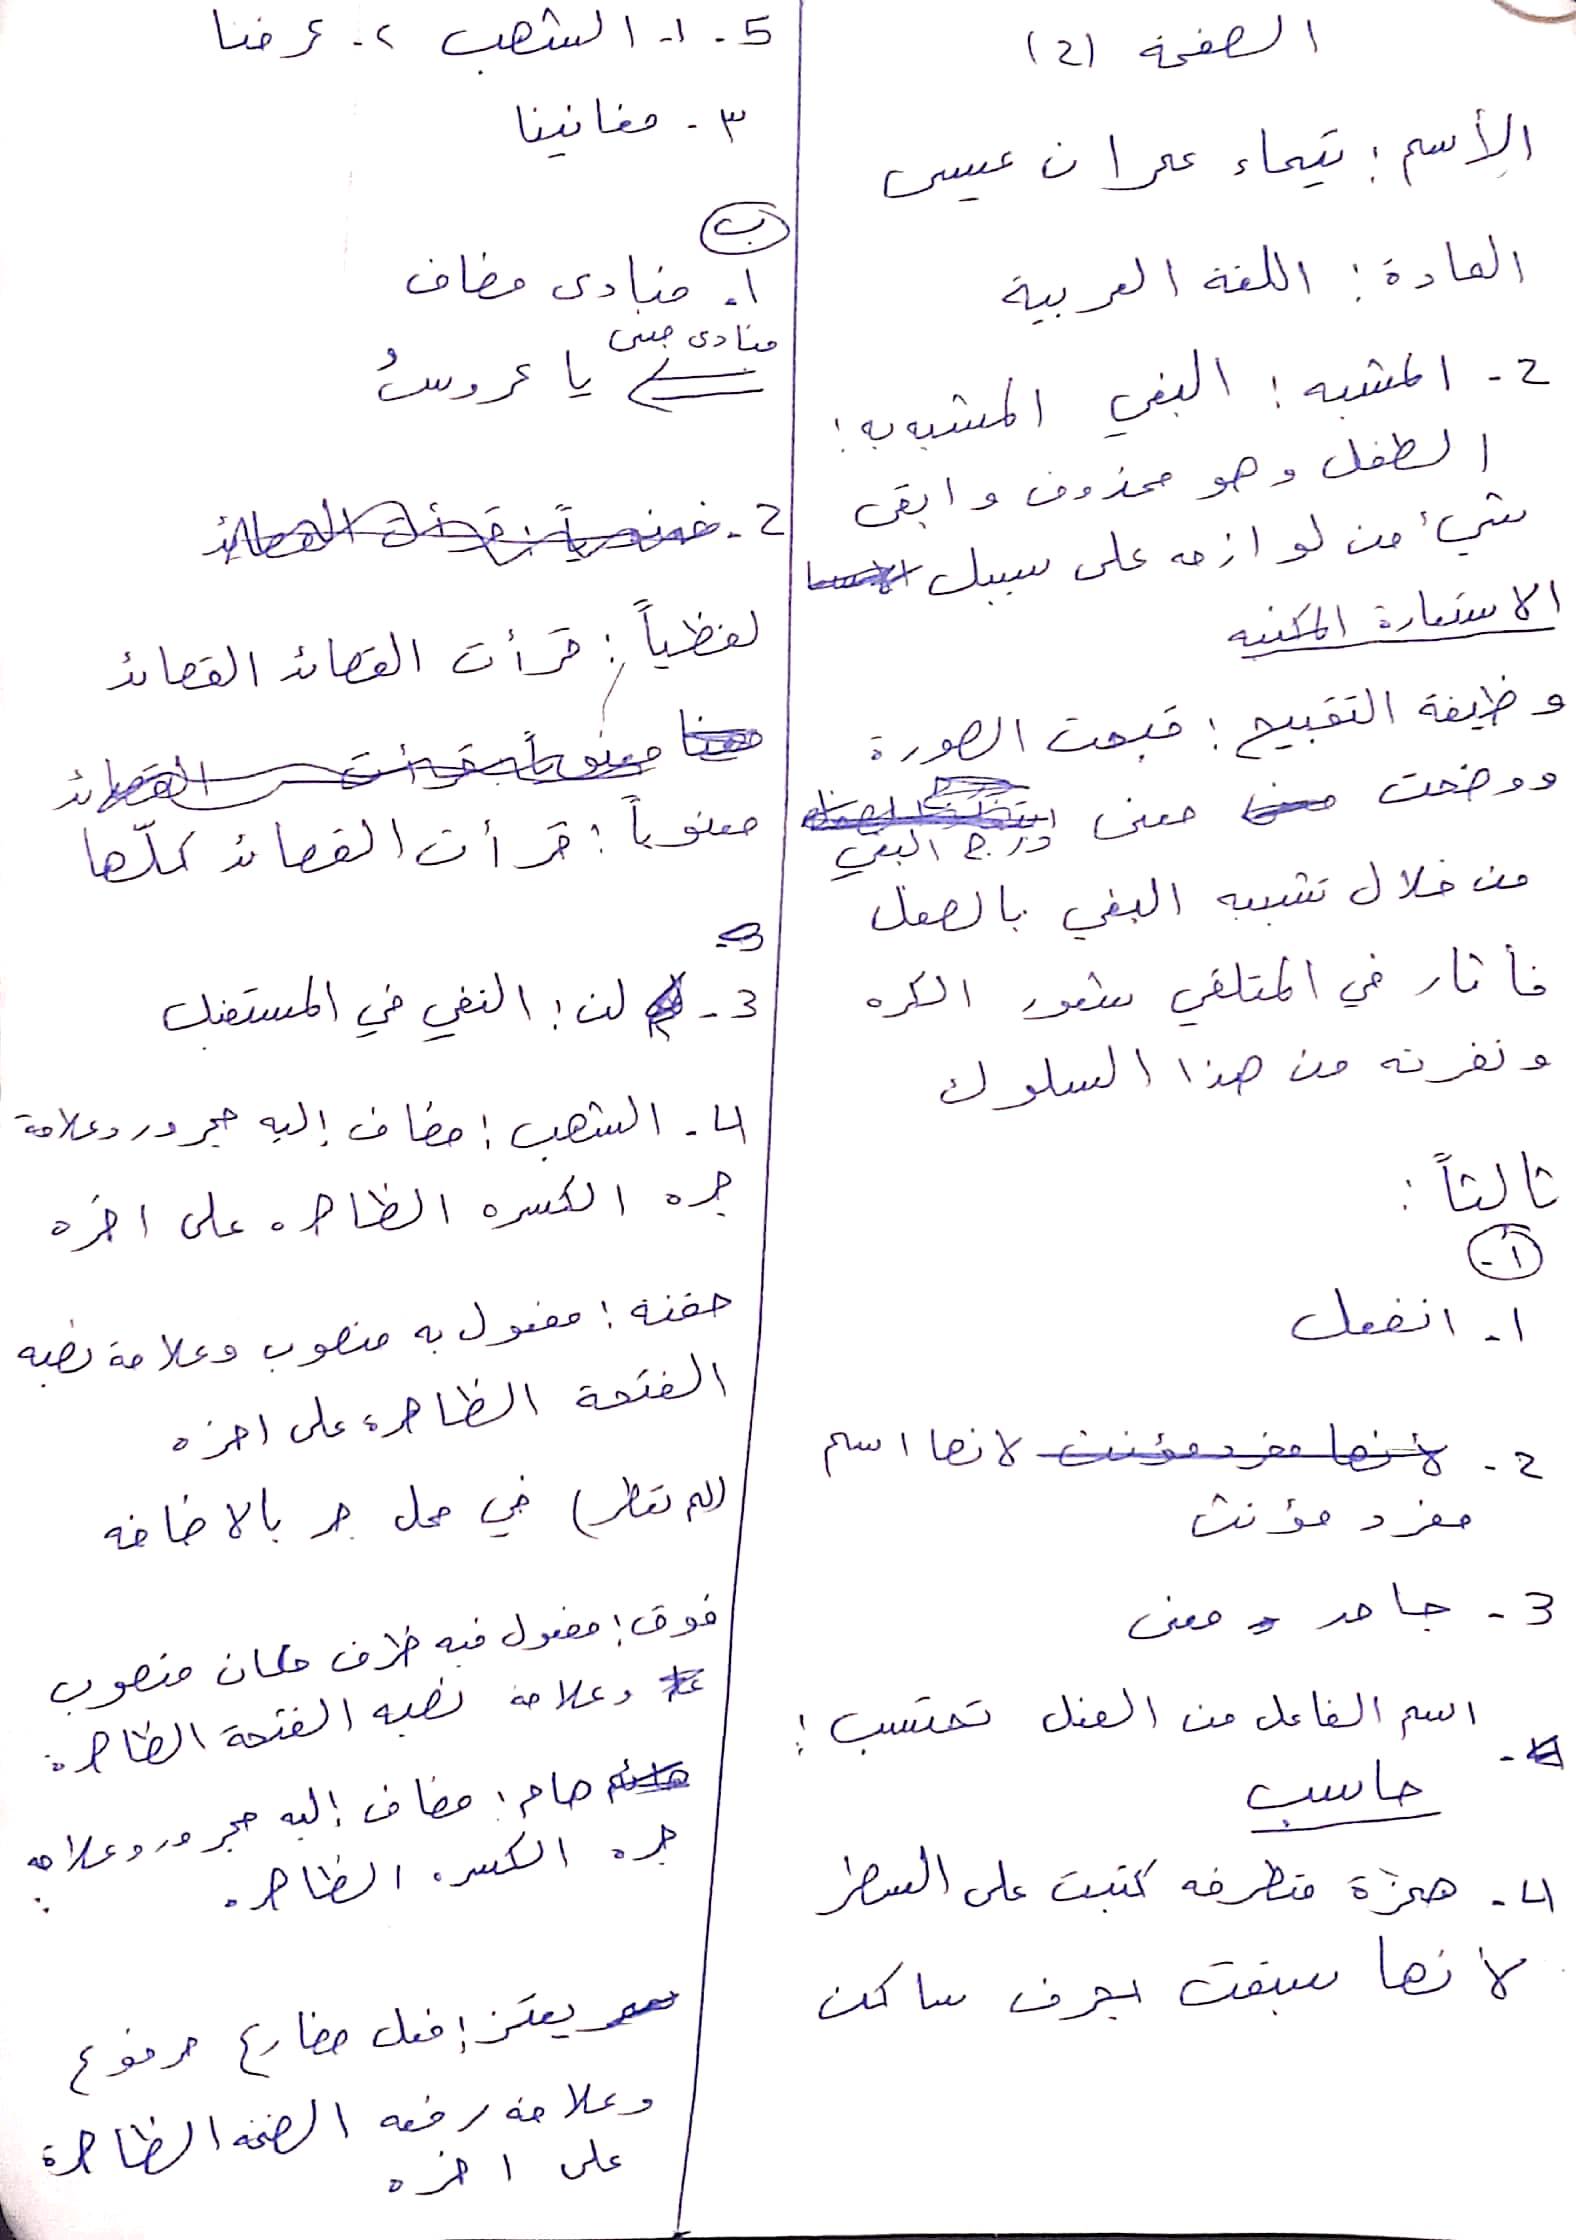 الصفحة (2)
الإسم: تيماء عمران عيسى
المادة: اللغة العربية
2- المشبه: البغي المشبه به:
الطفل وهو محذوف وابقى
شيء من لوازمه على سبيل
الاستعارة المكنيه
وظيفة التقبيح: قبحت الصورة
ووضحت معنى البغي
من خلال تشبيه البغي بالطفل
فأثار في المتلقي شعور الكره
ونفرته من هذا السلوك
ثالثاً:
أ-
١- انفعل
2- لأنها مفرد مؤنث لانها اسم
مفرد مؤنث
3- جامد معنى
اسم الفاعل من الفعل تحتسب:
حاسب
4- همزة متطرفه كتبت على السطر
لانها سبقت بحرف ساكن
5- ١- الشهب ٢- عرفنا
٣- مغانينا
ب
١- منادى مضاف
منادى
يا عروسُ
2-
لفظياً: قرأت القصائد القصائد
معنوياً: قرأت القصائد كلّها
3-
3- لن: النفي في المستقبل
4- الشهب: مضاف إليه مجرور وعلامة
جره الكسره الظاهره على اخره
حفنة: مفعول به منصوب وعلامة نصبه
الفتحة الظاهرة على اخره
(لم تنظر) في محل جر بالاضافه
فوق: مفعول فيه ظرف مكان منصوب
وعلامة نصبه الفتحة الظاهرة
هام: مضاف إليه مجرور وعلامه
جره الكسره الظاهره
يعتز: فعل مضارع مرفوع
وعلامة رفعه الضمة الظاهرة
على اخره